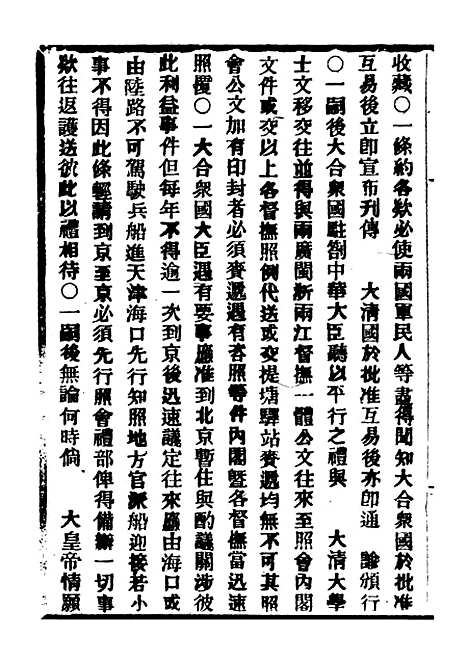 收藏○一條約各欵必使兩國軍民人等盡得聞知大合衆國於批准
互易後立卽宣布刋傳　　大清國於批准互易後亦卽通　諭頒行
○一嗣後大合衆國駐劄中華大臣聽以平行之禮與　　大清大學
士文移交往並得與兩廣閩浙兩江督撫一體公文往來至照會內閣
文件或交以上各督撫照例代送或交提塘驛站賫遞均無不可其照
會公文加有印封者必須賫遞遇有咨照等件內閣曁各督撫當迅速
照覆○一大合衆國大臣遇有要事應准到北京暫住與酌議關涉彼
此利益事件但每年不得逾一次到京後迅速議定往來應由海口或
由陸路不可駕駛兵船進天津海口先行知照地方官派船迎接若小
事不得因此條輕請到京至京必須先行照會禮部俾得備辦一切事
欵往返護送彼此以禮相待○一嗣後無論何時倘　　大皇帝情願